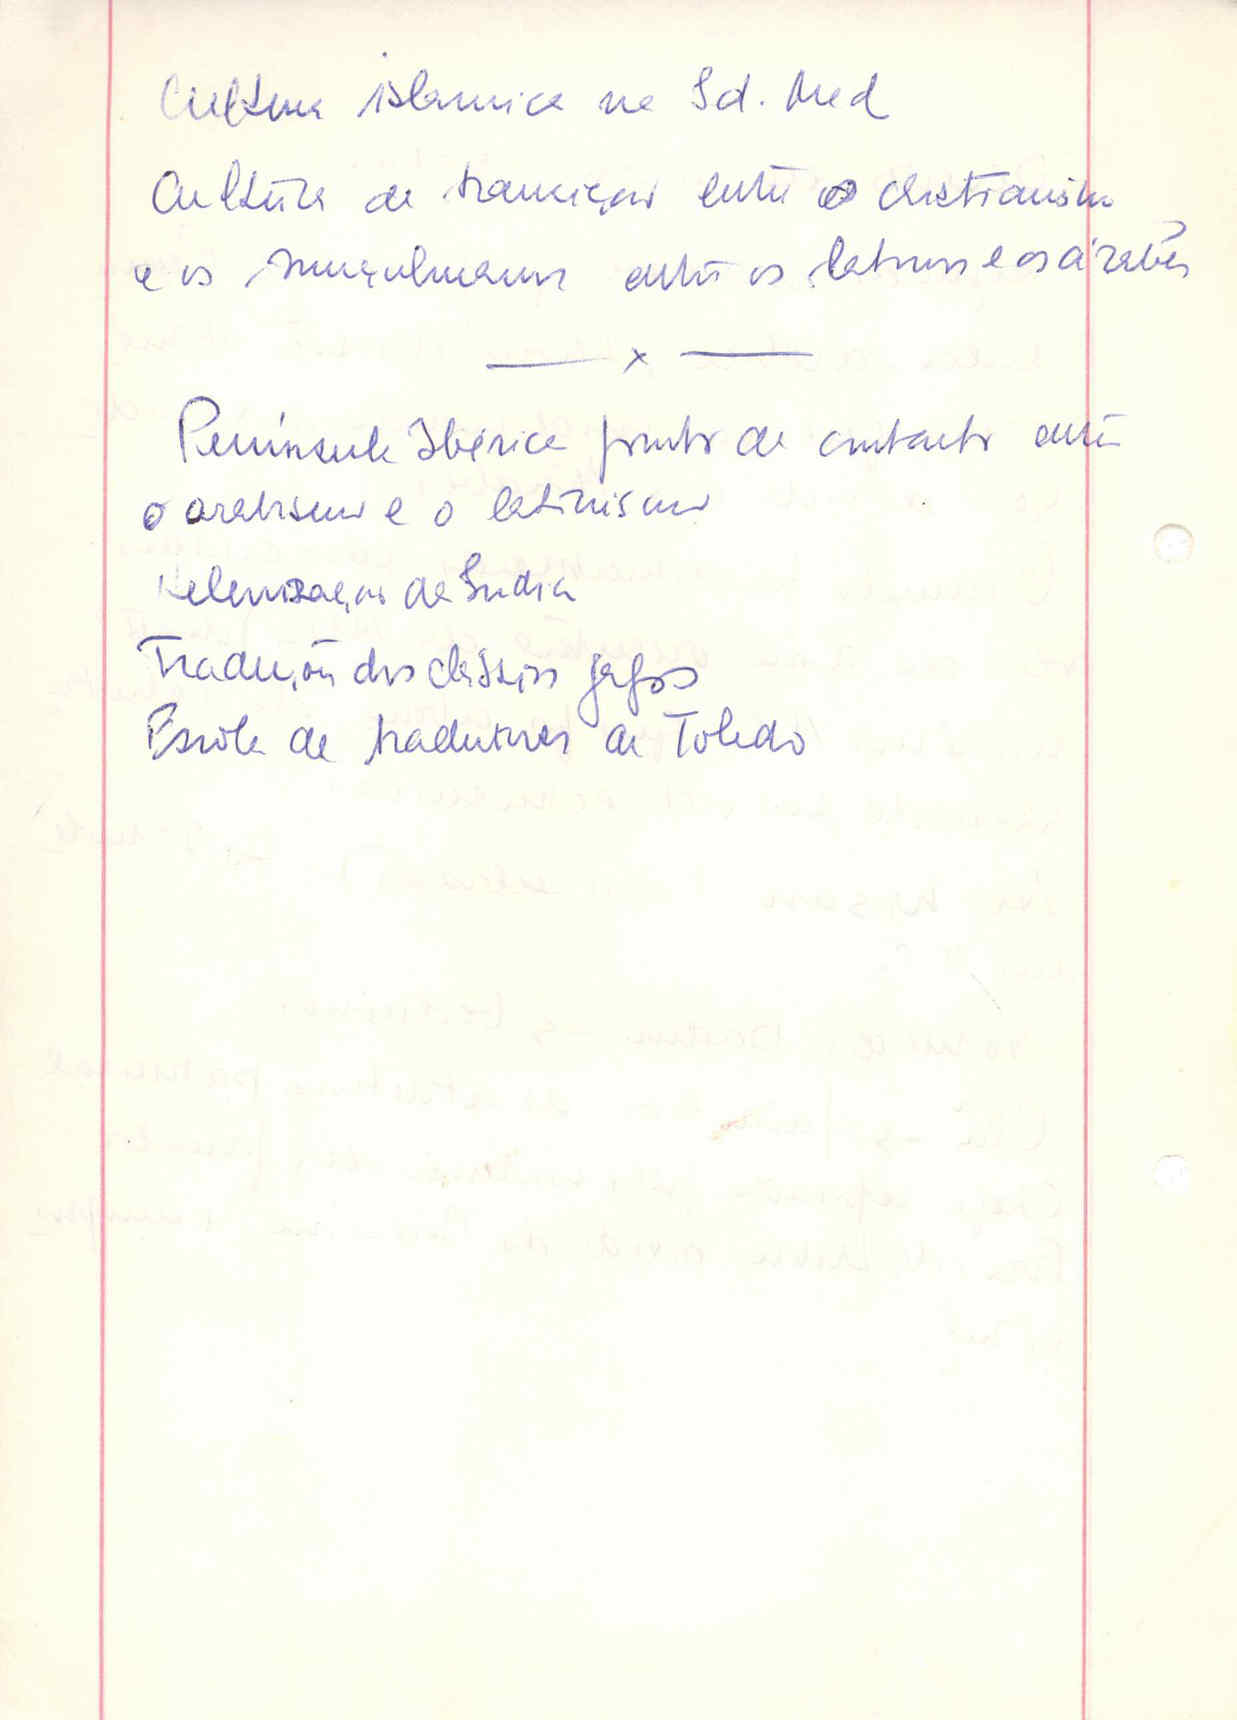 Cultura islamica na Id. Med
Cultura de transição entre o cristianismo
e os muçulmanos entre os latinos e os árabes
x
Peninsula Ibérica ponto de contacto entre
o arabismo e o latinismo
Helenização da Síndia
Tradução dos clássicos gregos
Escola de tradutores de Toledo